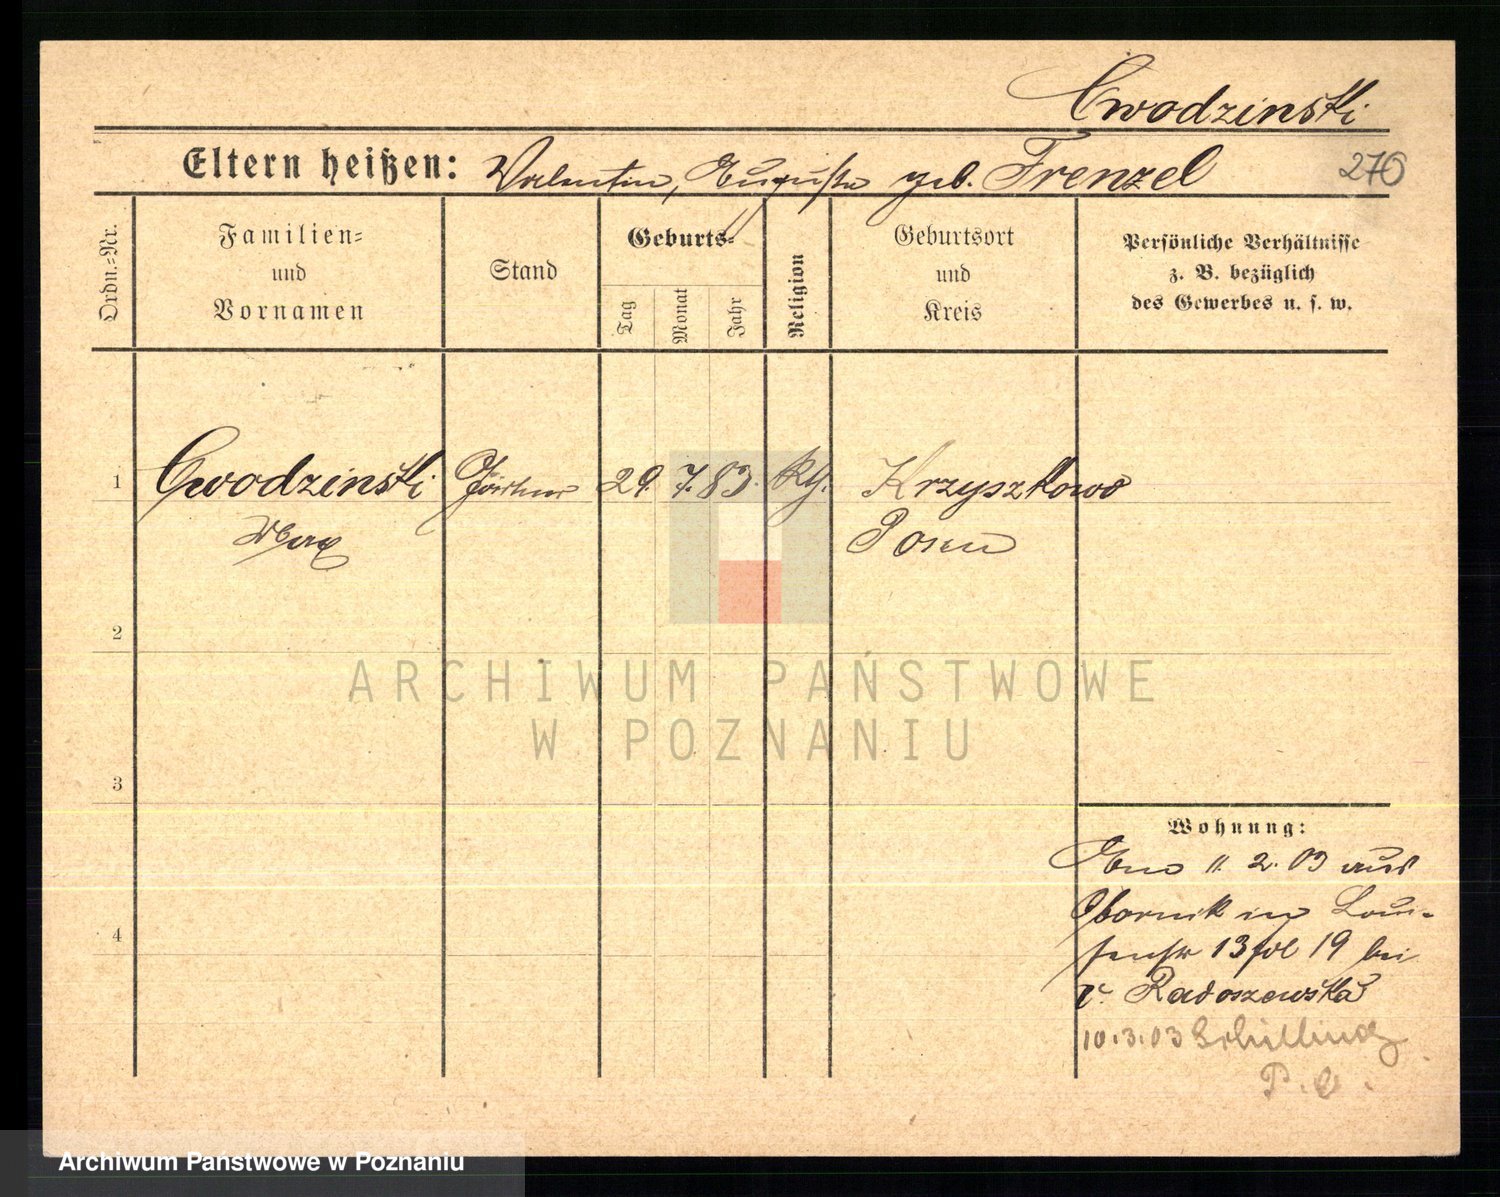 Cwodzinski
Eltern heißen: Valentin, Auguste geb. Frenzel
276
Ordn.-Nr.
Familien-
und
Vornamen
Stand
Geburts-
Tag
Monat
Jahr
Religion
Geburtsort
und
Kreis
Persönliche Verhältnisse
z. B. bezüglich
des Gewerbes u. s. w.
1 Cwodzinski Gärtner 29. 7. 83. Kth. Krzyszkowo
Max Posen
2
ARCHIWUM PAŃSTWOWE
W POZNANIU
3
Wohnung:
11. 2. 03 aus
Obornik in Loui-
senstr 13 19 bei
v. Radoszewska
10.3.03 Schilling
Archiwum Państwowe w Poznaniu
4